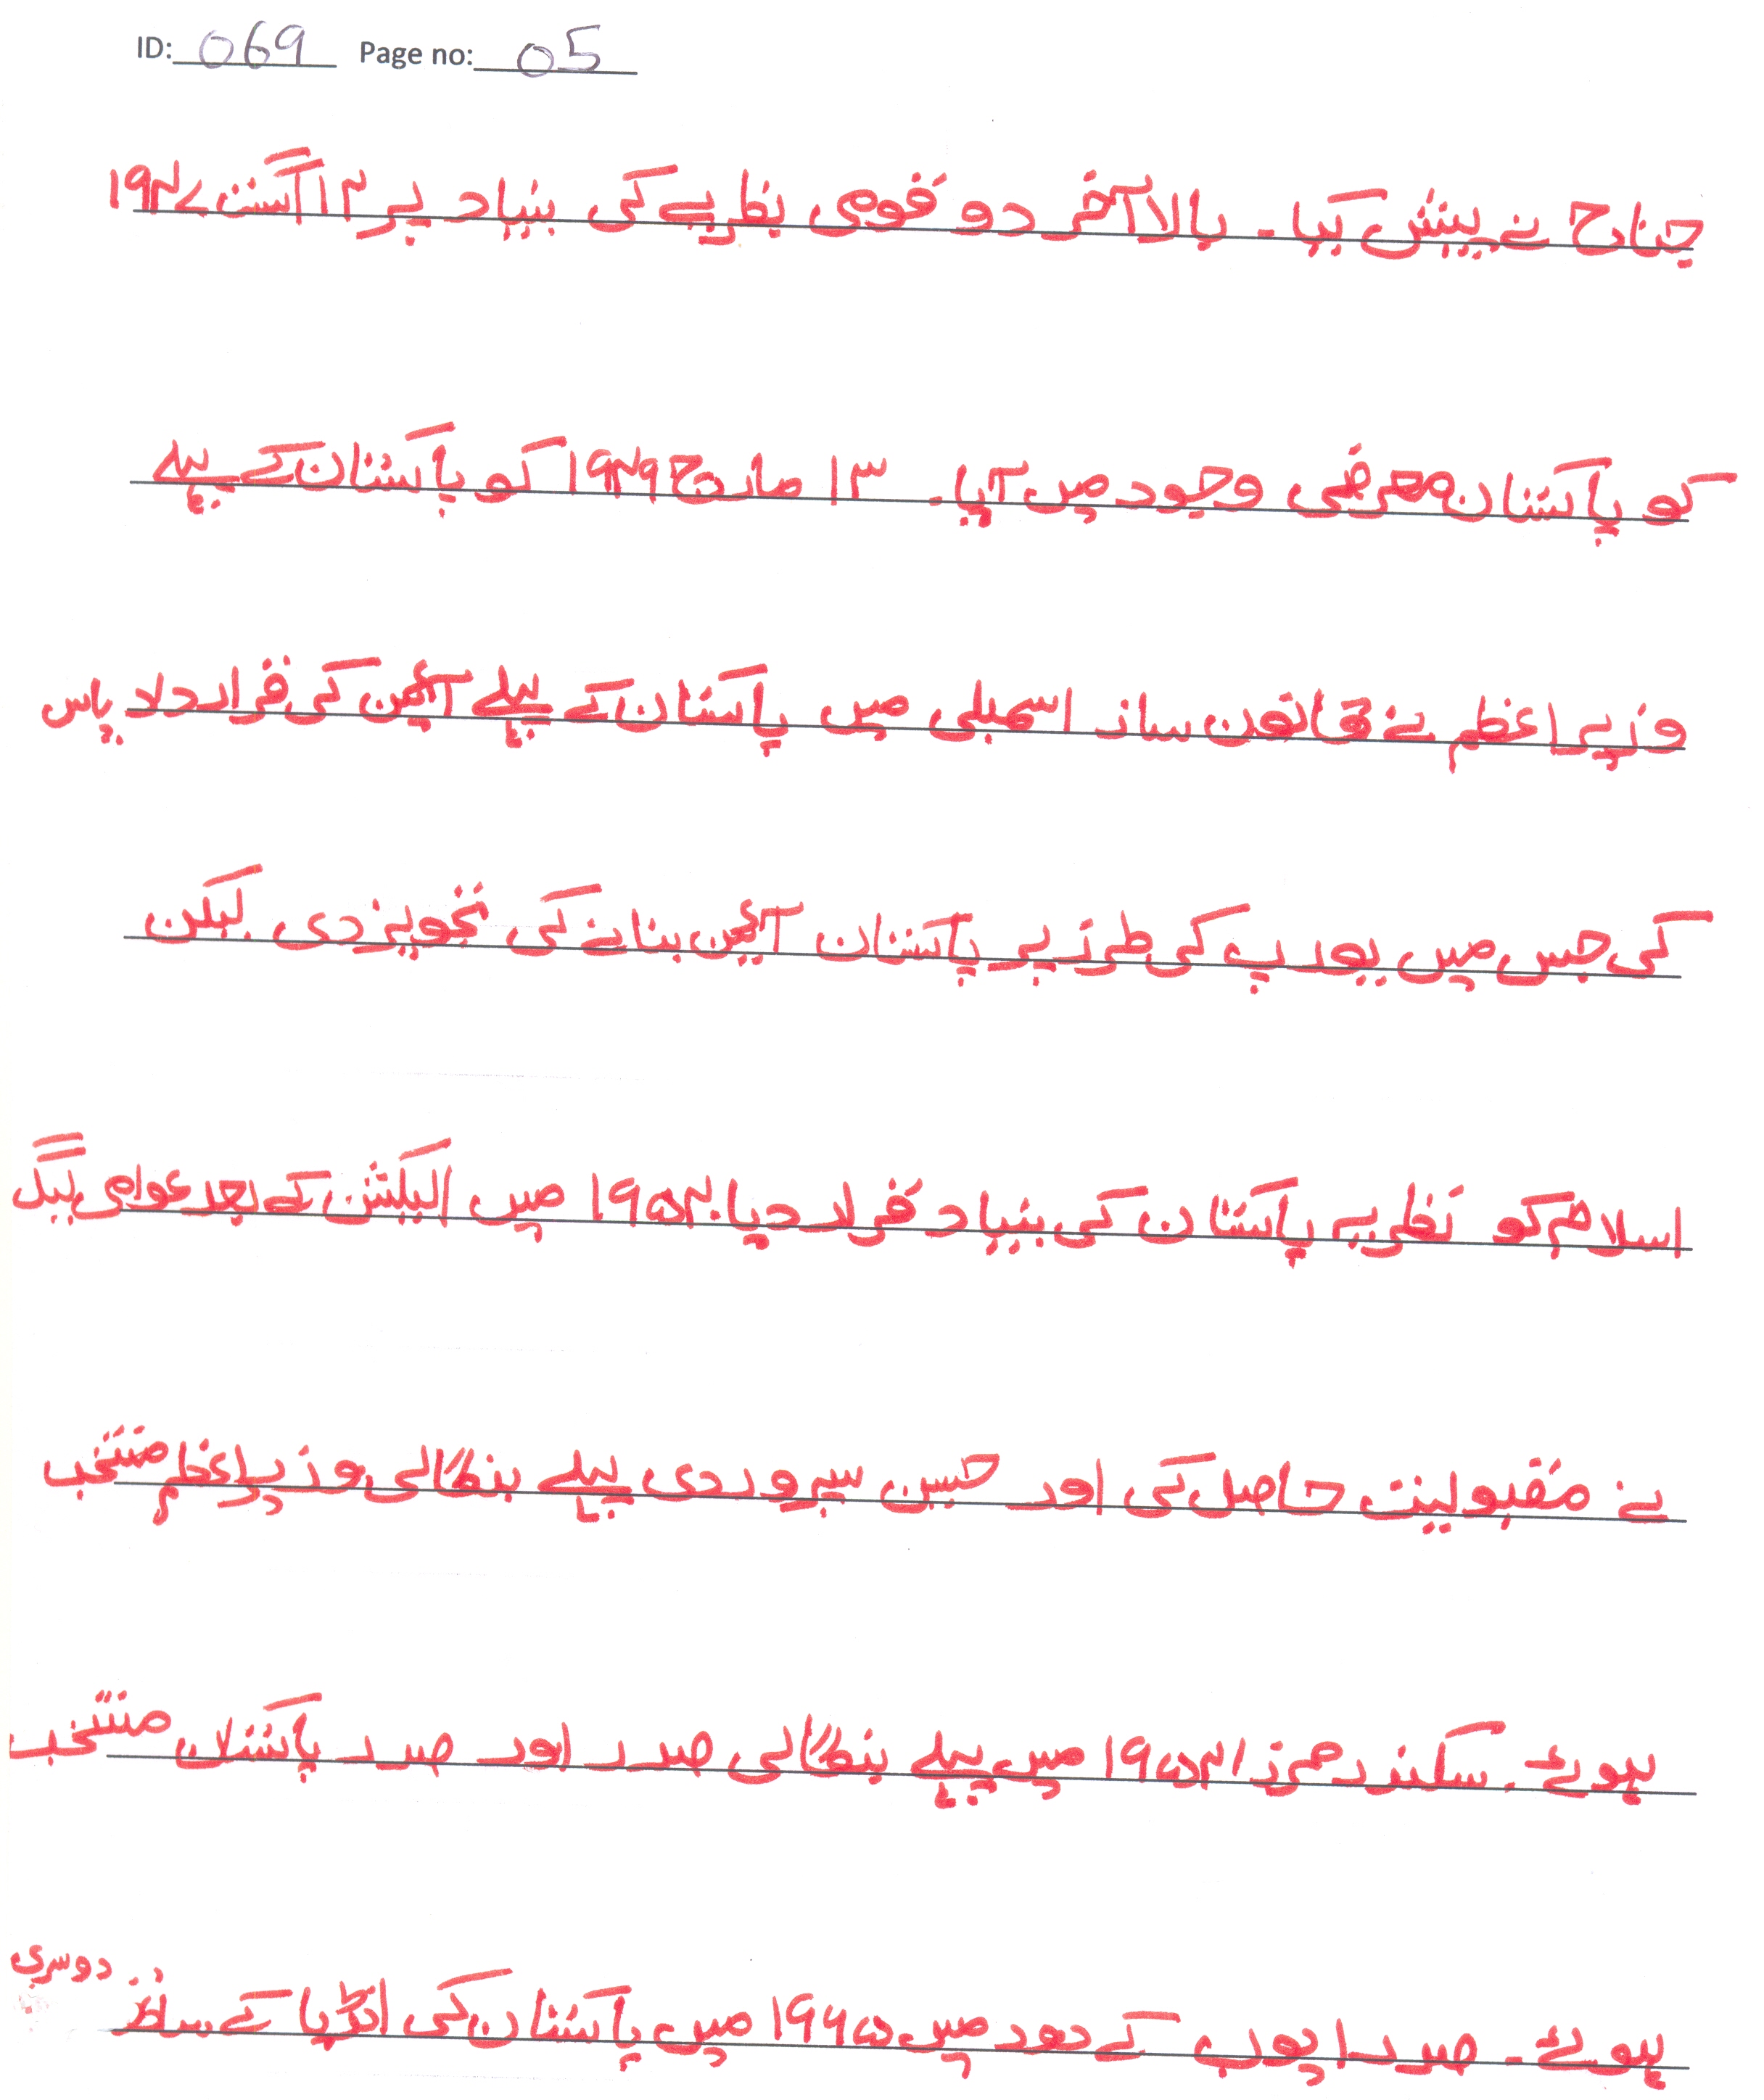 ID: 069 Page no: 05
جناح نے پیش کیا۔ بالاآخر دو قومی نظریے کی بنیاد پر ۱۴ اگست ۱۹۴۷
کو پاکستان معرضی وجود میں آیا۔ ۱۳ مارچ ۱۹۴۹ کو پاکستان کے پہلے
وزیر اعظم نے قانون ساز اسمبلی میں پاکستان کے پہلے آئین کی قرار دلا پاس
کی جس میں یورپ کی طرز پر پاکستان آئین بنانے کی تجویز دی لیکن
اسلام کو نظریہ پاکستان کی بنیاد قرار دیا۔ ۱۹۵۴ میں الیکشن کے بعد عوامی لیگ
نے مقبولیت حاصل کی اور حسین سہروردی پہلے بنگالی وزیراعظم منتخب
ہوئے۔ سکندر مرزا ۱۹۵۴ میں پہلے بنگالی صدر اور صدر پاکستان منتخب
ہوئے۔ صدر ایوب کے دور میں ۱۹۶۵ میں پاکستان کی انڈیا کے ساتھ دوسری